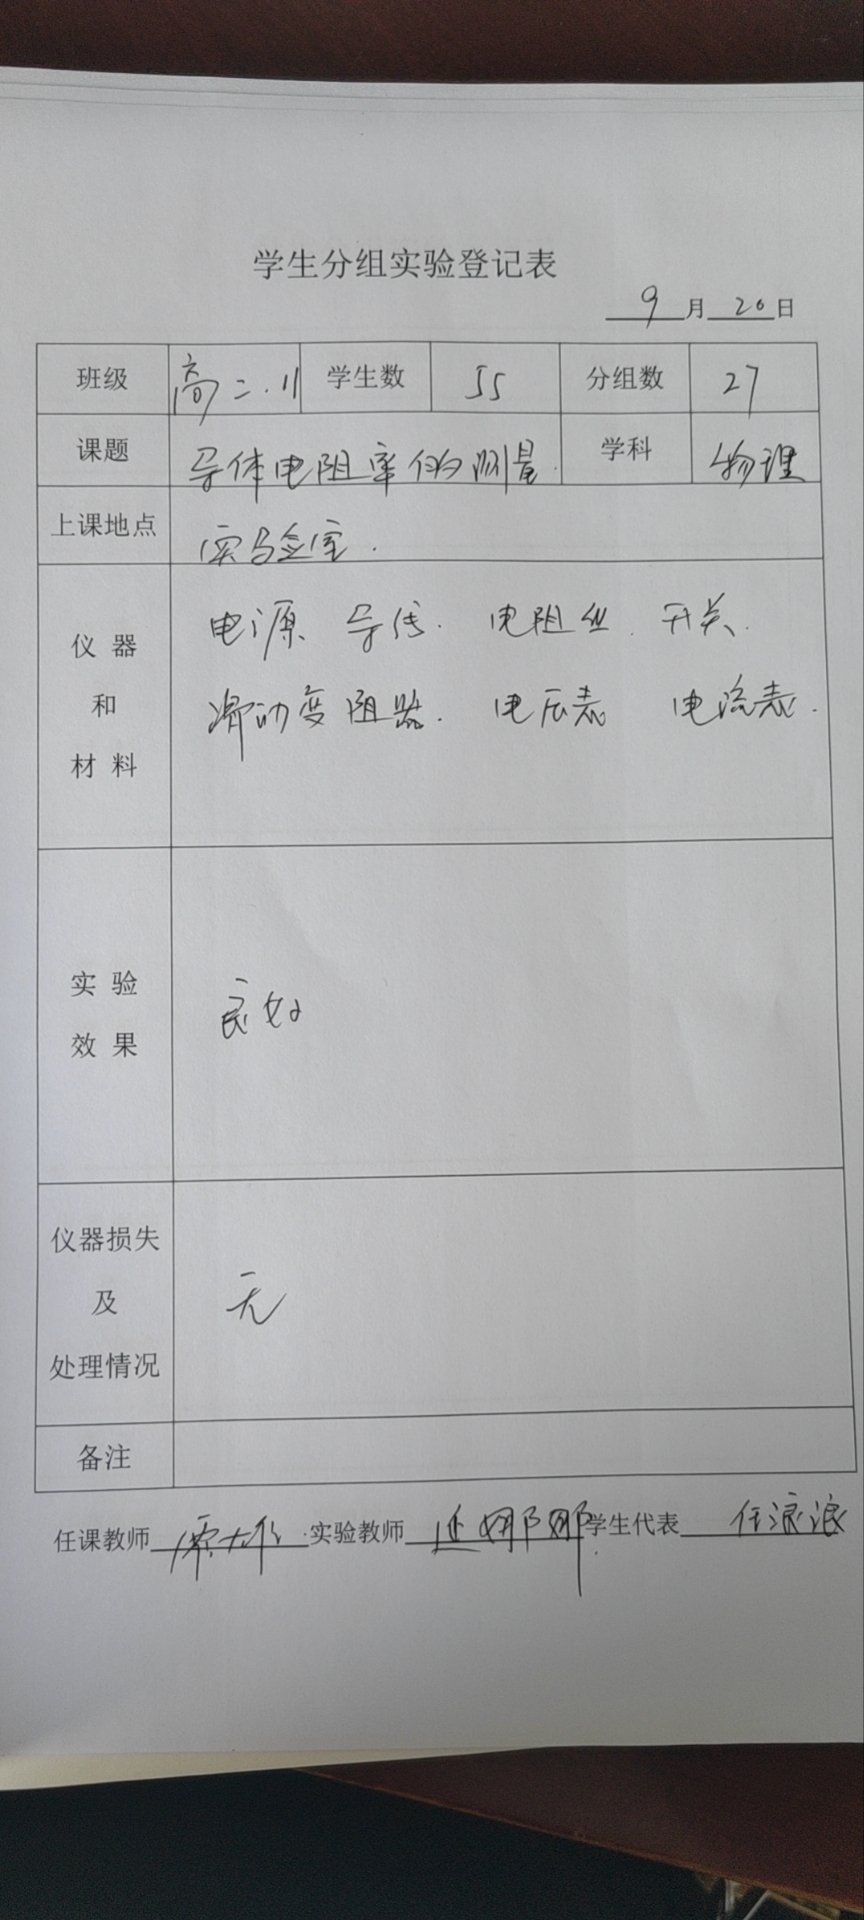 学生分组实验登记表
9月20日
班级 高二.11 学生数 55 分组数 27
课题 导体电阻率的测量 学科 物理
上课地点 实验室.
仪器和材料 电源 导线. 电阻丝. 开关.
滑动变阻器. 电压表 电流表.
实验效果 良好
仪器损失及处理情况 无
备注
任课教师 实验教师 延娜娜 学生代表 任浪浪